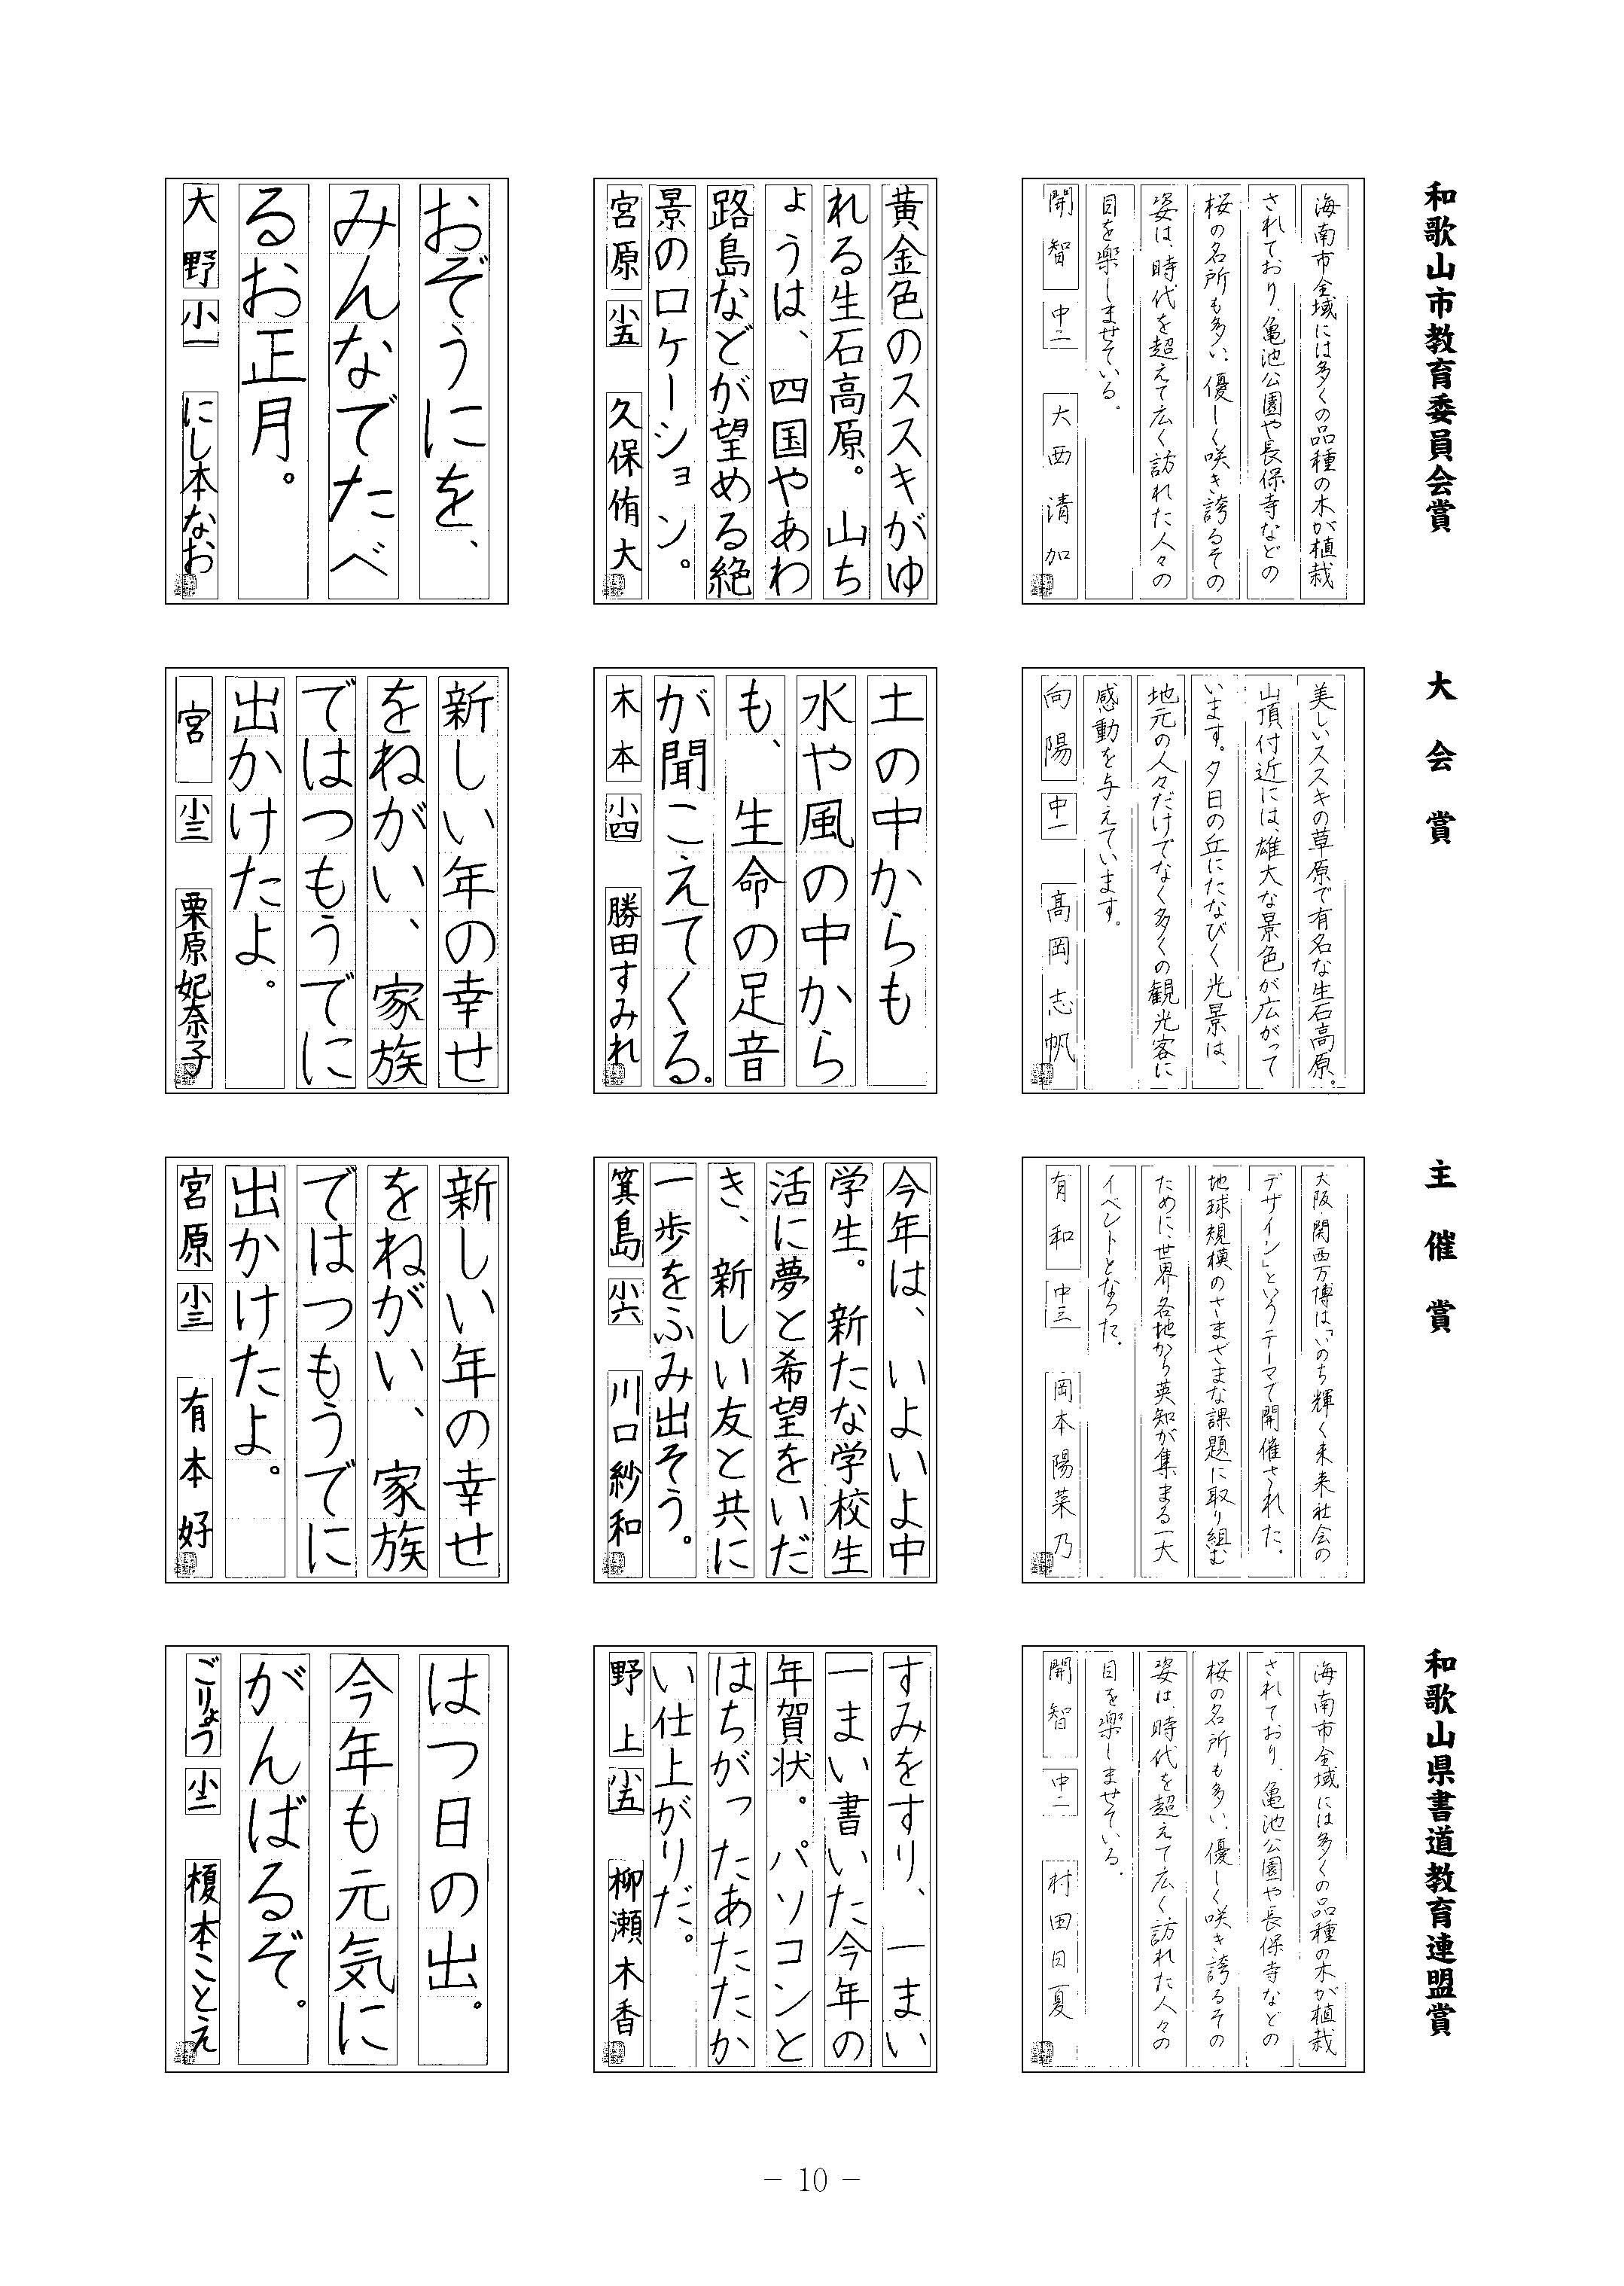 和歌山市教育委員会賞
海南市全域には多くの品種の木が植栽
されており、亀池公園や長保寺などの
桜の名所も多い。優しく咲き誇るその
姿は、時代を超えて広く訪れた人々の
目を楽しませている。
開智 中二 大西清加
黄金色のススキがゆ
れる生石高原。山ち
ょうは、四国やあわ
路島などが望める絶
景のロケーション。
宮原 小五 久保侑大
おぞうにを、
みんなでたべ
るお正月。
大野 小一 にし本なお
大会賞
美しいススキの草原で有名な生石高原。
山頂付近には、雄大な景色が広がって
います。夕日の丘にたなびく光景は、
地元の人々だけでなく多くの観光客に
感動を与えています。
向陽 中一 髙岡志帆
土の中からも
水や風の中から
も、生命の足音
が聞こえてくる。
木本 小四 勝田すみれ
新しい年の幸せ
をねがい、家族
ではつもうでに
出かけたよ。
宮 小三 栗原妃奈子
主催賞
大阪・関西万博は「いのち輝く未来社会の
デザイン」というテーマで開催された。
地球規模のさまざまな課題に取り組む
ために、世界各地から英知が集まる一大
イベントとなった。
有和 中三 岡本陽菜乃
今年は、いよいよ中
学生。新たな学校生
活に夢と希望をいだ
き、新しい友と共に
一歩をふみ出そう。
箕島 小六 川口紗和
新しい年の幸せ
をねがい、家族
ではつもうでに
出かけたよ。
宮原 小三 有本好
和歌山県書道教育連盟賞
海南市全域には多くの品種の木が植栽
されており、亀池公園や長保寺などの
桜の名所も多い。優しく咲き誇るその
姿は、時代を超えて広く訪れた人々の
目を楽しませている。
開智 中二 村田日夏
すみをすり、一まい
一まい書いた今年の
年賀状。パソコンと
はちがったあたたか
い仕上がりだ。
野上 小五 柳瀬木香
はつ日の出。
今年も元気に
がんばるぞ。
ごりょう 小二 榎本ことえ
－ 10 －